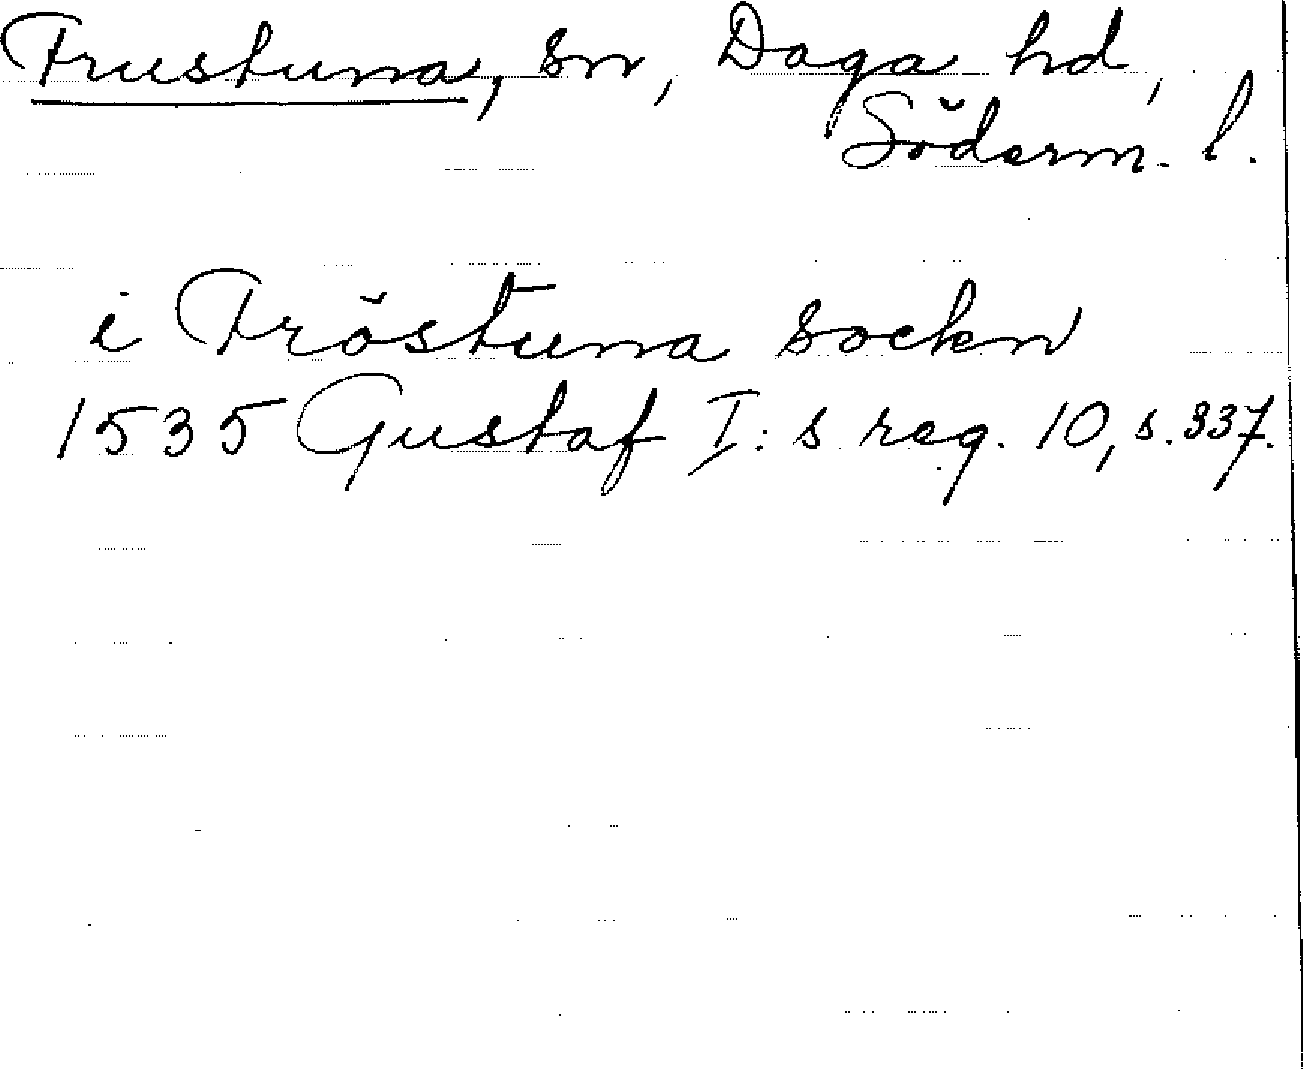 Frustuna, sn, Daga hd,
Söderm. l.
i Fröstuna sockn
1535 Gustaf I:s reg. 10, s. 337.